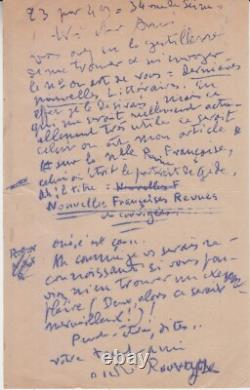 23 juin 49 = 34 rue de Seine
Très cher Ami
vous avez eu la gentillesse
de me trouver et m'envoyer
le N° où est de vous = dernières
nouvelles Littéraires. En
effet je le désirais, mais ce
qui me serait réellement actu-
ellement très utile ce serait
celui où est mon article
sur la Nlle Revue Française,
celui où était le portrait de Gide,
titre =
Nouvelles Françaises Revues
et corrigées.
oui, c'est ça...
Ah comme je vous serais re-
connaissant si vous pou-
viez m'en trouver un exem-
plaire ! (Deux, alors ce serait
merveilleux !) !
Peut-être, dites..
votre ami
Rouveyre
©